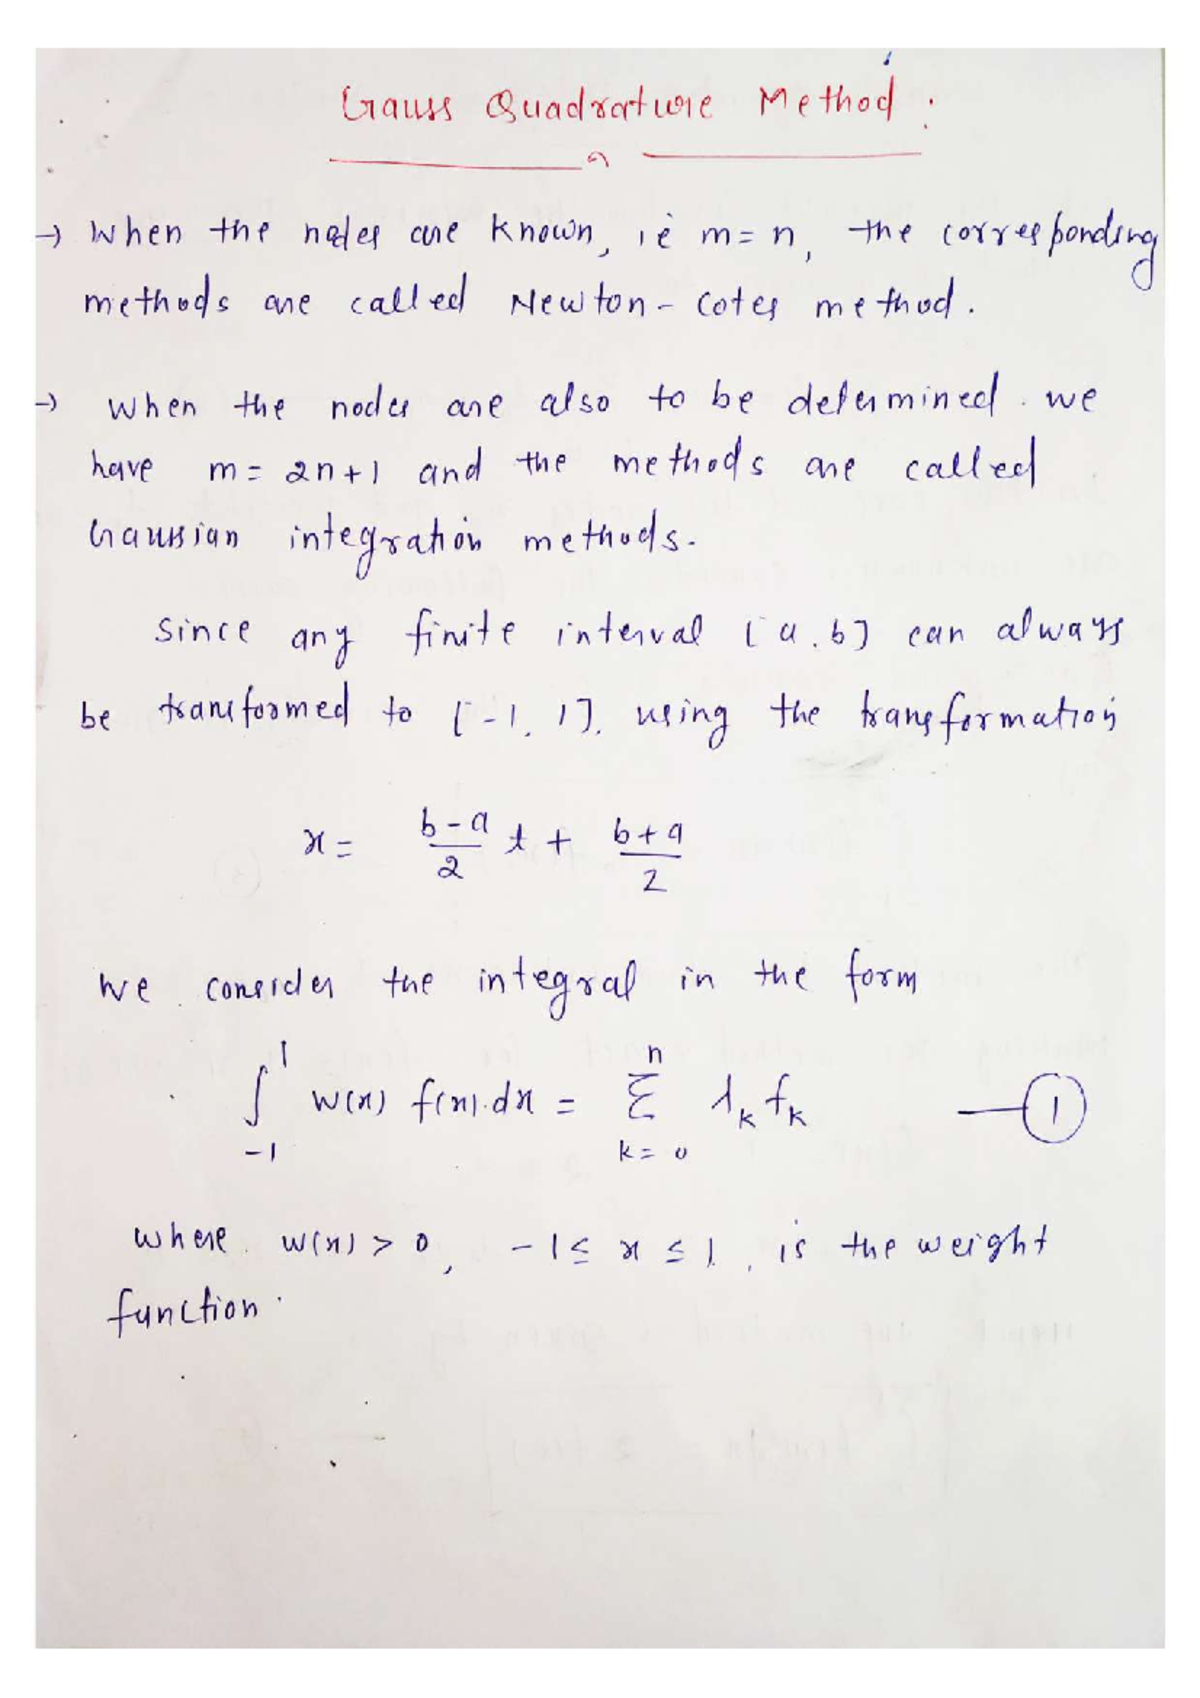 Gauss Quadrature Method.
→ When the nodes are known, ie m = n, the corresponding
methods are called Newton-Cotes method.
→ When the nodes are also to be determined. we
have m = 2n+1 and the methods are called
Gaussian integration methods.
Since any finite interval [a,b] can always
be transformed to [-1, 1], using the transformation
x = \frac{b-a}{2} t + \frac{b+a}{2}
We consider the integral in the form
∫_{-1}^{1} w(x) f(x).dx = Σ_{k=0}^{n} λ_k f_k —①
where w(x) > 0, -1 ≤ x ≤ 1, is the weight
function.